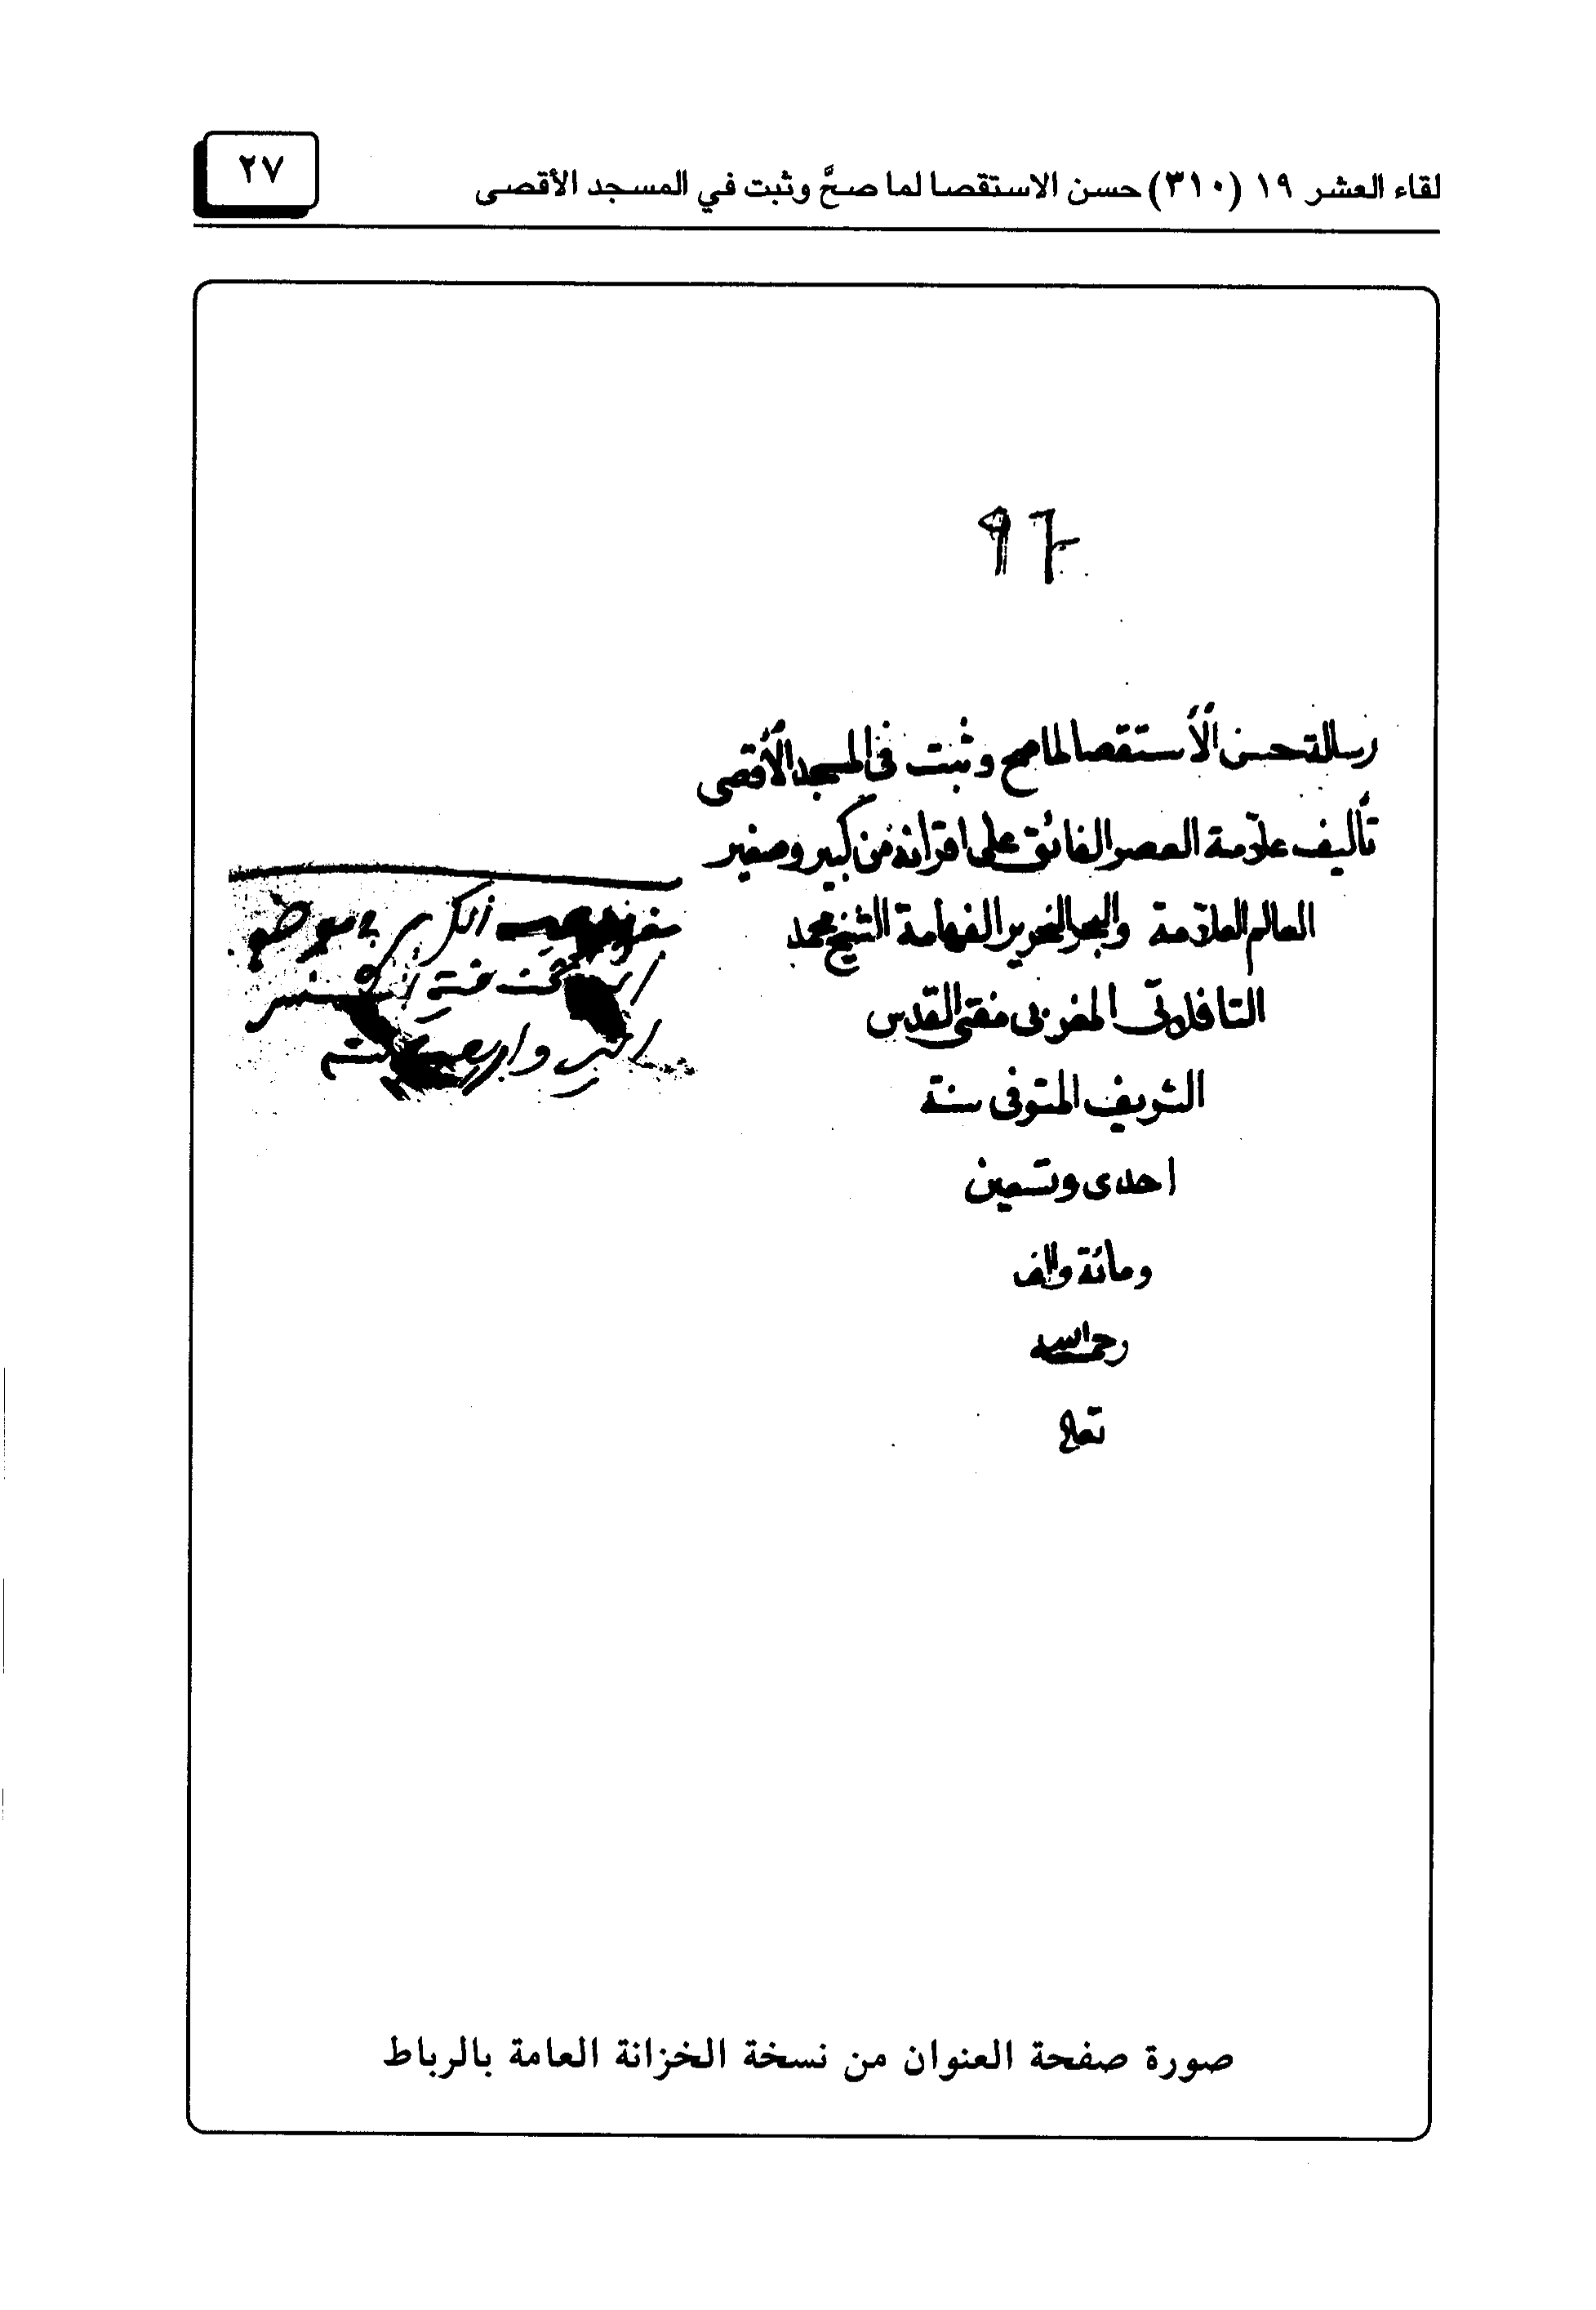 لقاء العشر ١٩ (٣١٠) حسن الاستقصا لما صحَّ وثبت في المسجد الأقصى
٢٧
رسالة حسن الأستقصا لما صح وثبت في المسجد الأقصى
تأليف علامة العصر الفائق على اقرانه من كبير وصغير
العالم العلامة والبحر النحرير الفهامة الشيخ محمد
التافلاتي المغربى مفتى القدس
الشريف المتوفى سنة
احدى وتسعين
ومائة والف
رحمه الله
تعالى
صورة صفحة العنوان من نسخة الخزانة العامة بالرباط